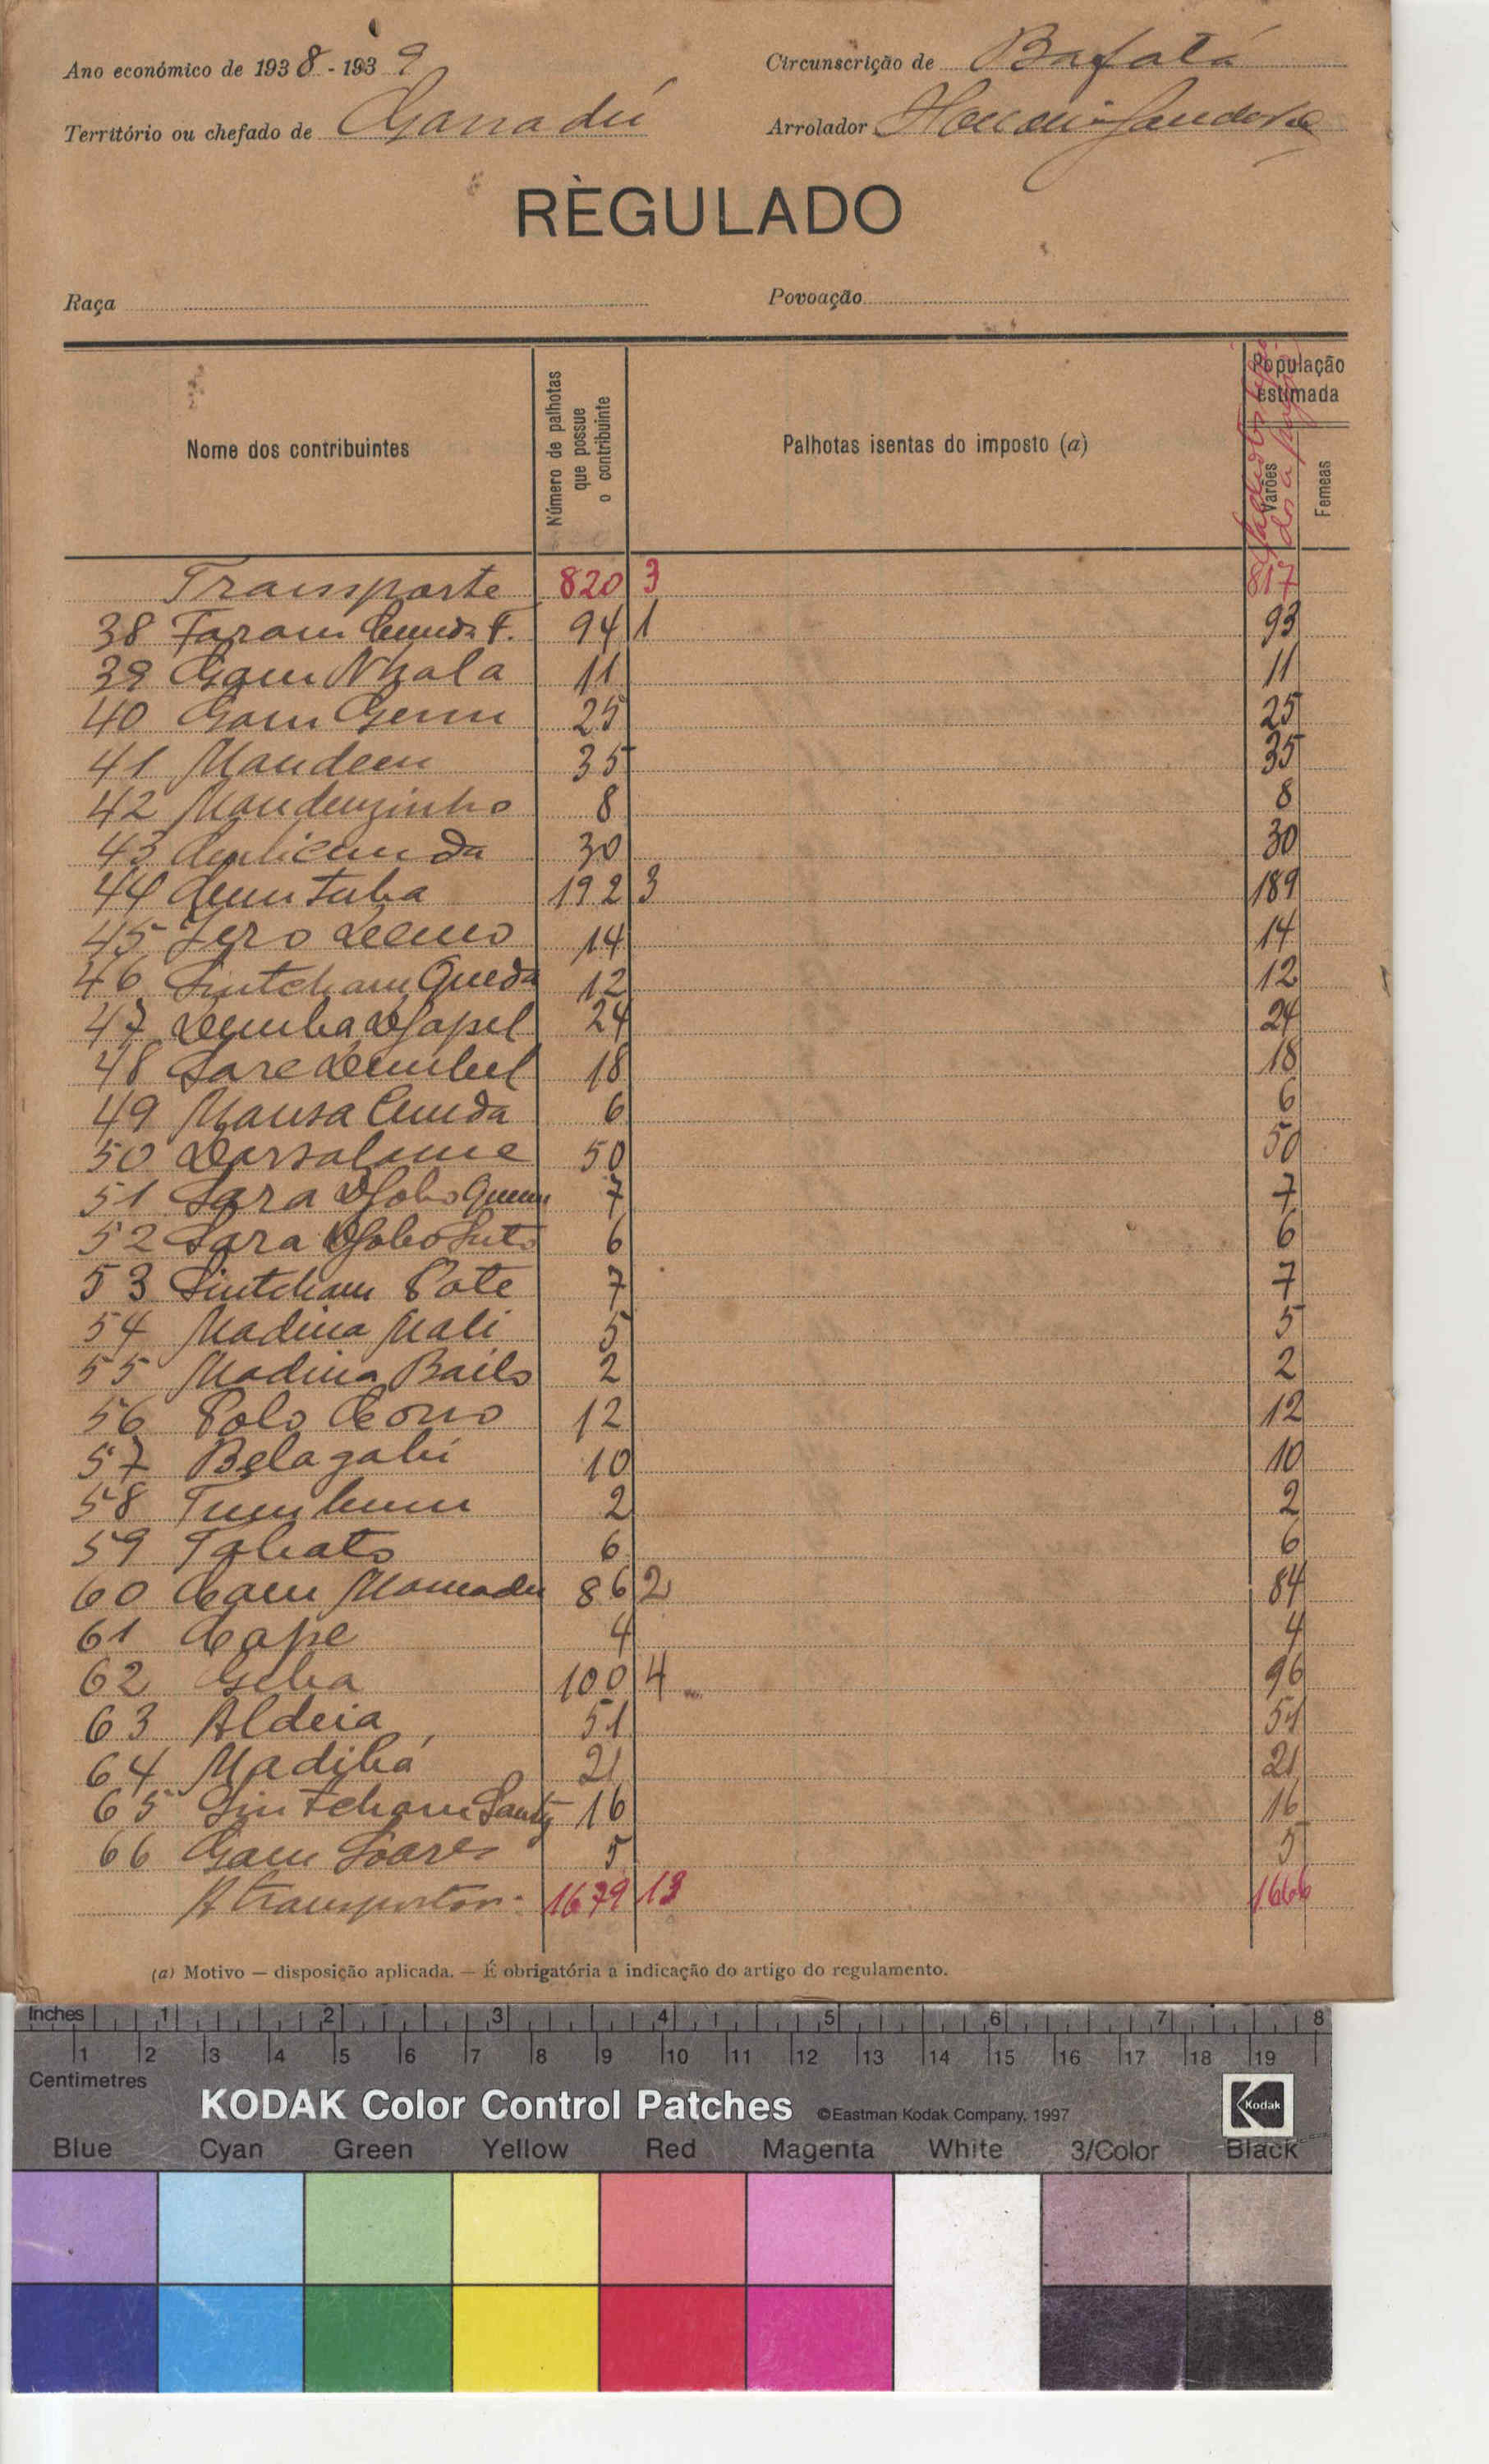 Ano económico de 1938 - 1939 Circunscrição de Bafatá
Território ou chefado de Ganadú Arrolador
RÈGULADO
Raça Povoação
Nome dos contribuintes
Número de palhotas que possue o contribuinte
Palhotas isentas do imposto (a)
População estimada
Varões
Femeas
Transporte 820 3 817
38 Faram Cunda F. 94 1 93
39 Gam Nhala 11 11
40 Gam Geru 25 25
41 Mandem 35 35
42 Mandenzinho 8 8
43 30 30
44 Tuba 192 3 189
45 Jero 14 14
46 Sintcham Queda 12 12
47 Demba Djapel 24 24
48 Sare Dembel 18 18
49 Mansa Cunda 6 6
50 Darsalame 50 50
51 Sara Djobo 7 7
52 Sara Djobo 6 6
53 Sintcham Pate 7 7
54 Madina Mali 5 5
55 Madina Bailo 2 2
56 Polo 12 12
57 Belagabi 10 10
58 Tumbum 2 2
59 Tabato 6 6
60 Cam Mamadu 86 2 84
61 Cape 4 4
62 Geba 100 4 96
63 Aldeia 51 51
64 Madibá 21 21
65 Sintcham 16 16
66 Gam Soares 5 5
A transportar 1679 13 1666
(a) Motivo — disposição aplicada. — É obrigatória a indicação do artigo do regulamento.
Inches 1 2 3 4 5 6 7 8
1 2 3 4 5 6 7 8 9 10 11 12 13 14 15 16 17 18 19
Centimetres
KODAK Color Control Patches ©Eastman Kodak Company, 1997 Kodak
Blue Cyan Green Yellow Red Magenta White 3/Color Black